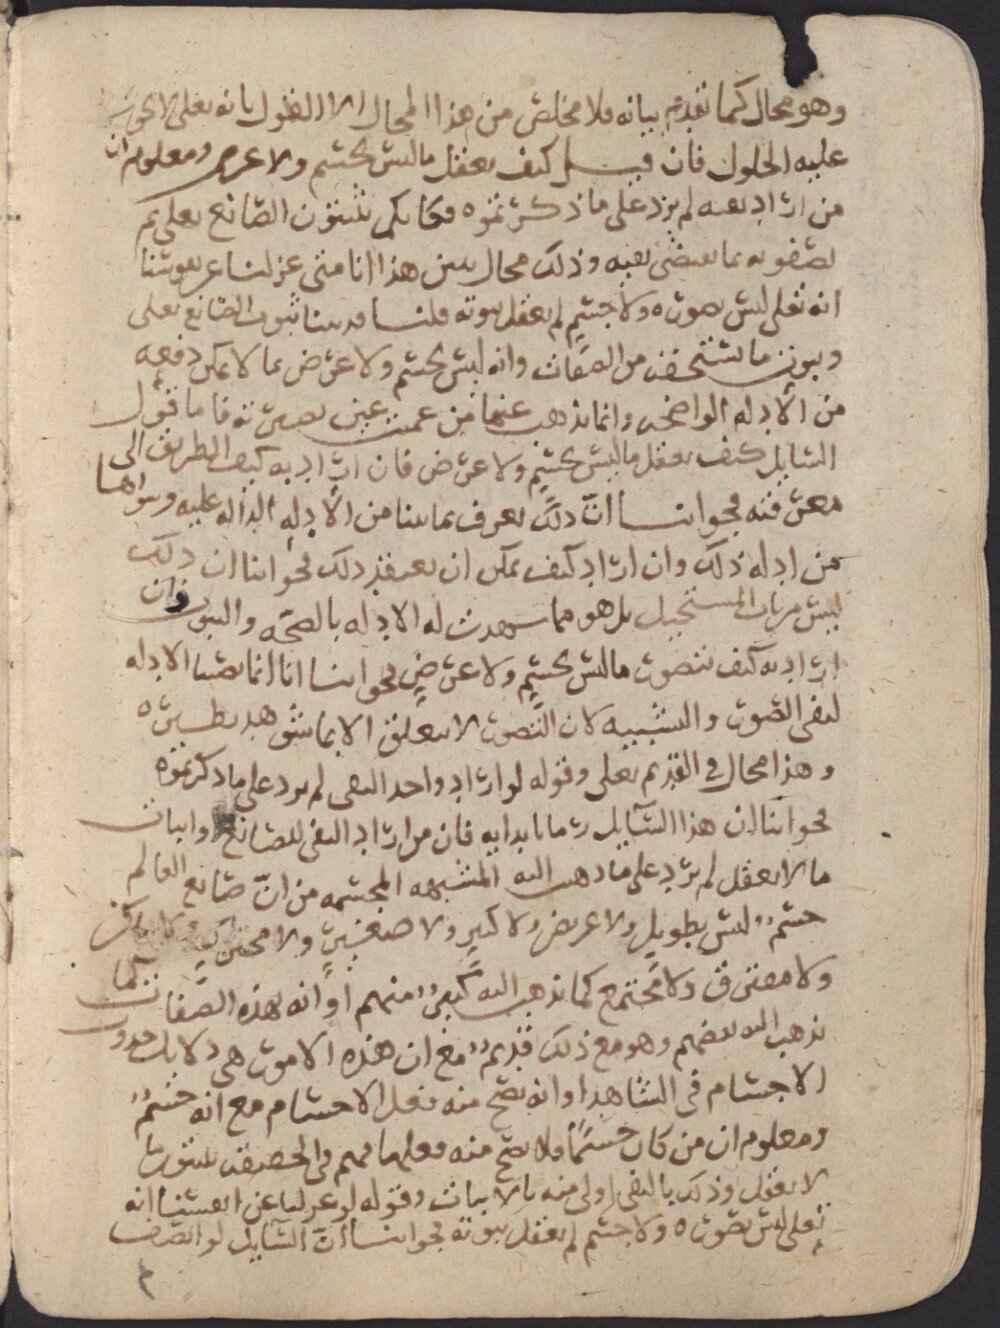 وهو محال كما تقدم بيانه فلا مخلص من هذا المحال الا القول بانه تعلى لا يجوز
عليه الحلول فان قيل كيف يعقل ما ليس بجسم ولا عرض ومعلوم ان
من اراد نفيه لم يزد على ما ذكرتموه فكانكم تثبتون الصانع تعلى ثم
تصفونه بما يقتضى نفيه وذلك محال يبين هذا انا متى عزلنا عن نفوسنا
انه تعلى ليس بصورة ولا جسم لم يعقل ثبوته قلنا قد بينا ثبوت الصانع تعلى
وثبوت ما يستحقه من الصفات وانه ليس بجسم ولا عرض بما لا يمكن دفعه
من الادله الواضحه وانما يذهب عنها من عميت عين بصيرته فاما قول
السايل كيف يعقل ما ليس بجسم ولا عرض فان اراد به كيف الطريق الى
معرفته فجوابنا ان ذلك يعرف بما بينا من الادله الداله عليه وسواها
من ادله ذلك وان اراد كيف يمكن ان يعتقد ذلك فجوابنا ان ذلك
ليس من باب المستحيل بل هو مما شهدت له الادله بالصحه والثبوت وان
اراد به كيف نتصور ما ليس بجسم ولا عرض فجوابنا انا انما نصبنا الادله
لنفى الصورة والتشبيه لان التصور لا يتعلق الا بما شوهد نظيره
وهذا محال في القديم تعلى وقوله لو اراد واحد النفى لم يزد على ما ذكرتموه
فجوابنا ان هذا السايل رمانا بدايه فان من اراد النفى للصانع واثبات
ما لا يعقل لم يزد على ما ذهب اليه المشبهه المجسمه من ان صانع العالم
جسم ليس بطويل ولا عريض ولا كبير ولا صغير ولا محترك ولا ساكن
ولا مفترق ولا مجتمع كما يذهب اليه كثير منهم او انه بهذه الصفات كما
يذهب اليه بعضهم وهو مع ذلك قديم مع ان هذه الامور هي دلايل حدوث
الاجسام في الشاهد او انه يصح منه فعل الاجسام مع انه جسم
ومعلوم ان من كان جسما فلا يصح منه فعلها فهم في الحقيقه يثبتون ما
لا يعقل وذلك بالنفى اولى منه بالاثبات وقوله لو عزلنا عن انفسنا انه
تعلى ليس بصورة ولا جسم لم يعقل ثبوته فجوابنا ان السايل لو انصف